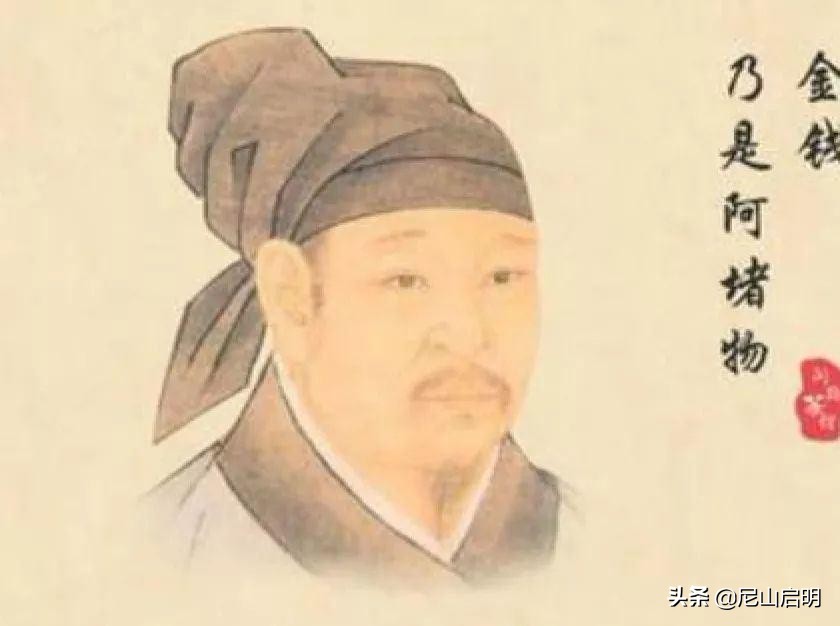 金钱
乃是阿堵物
头条 @尼山启明